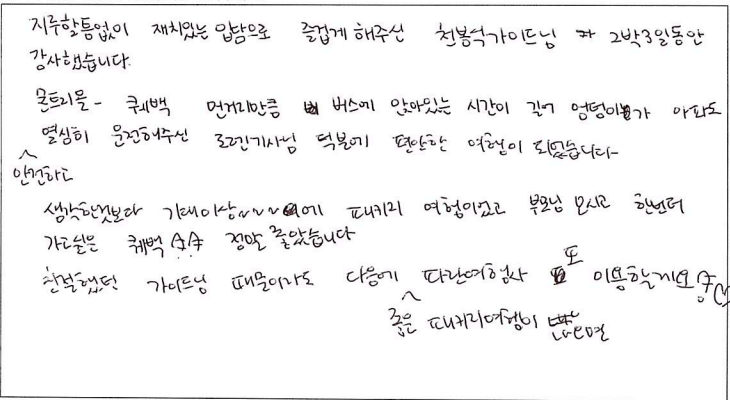 지루할틈없이 재치있는 입담으로 즐겁게 해주신 천봉석가이드님 2박3일동안
감사했습니다.
몬트리올 - 퀘백 먼거리만큼 버스에 앉아있는 시간이 길어 엉덩이가 아파도
열심히 운전해주신 로렌기사님 덕분에 편안한 여행이 되었습니다~
안전하고
생각한것보다 기대이상~~~에 패키지 여행이었고 부모님 모시고 한번더
가고싶은 퀘백 정말 좋았습니다
친절했던 가이드님 때문이라도 다음에 파란여행사 또 이용할게요
좋은 패키지여행이 있으면